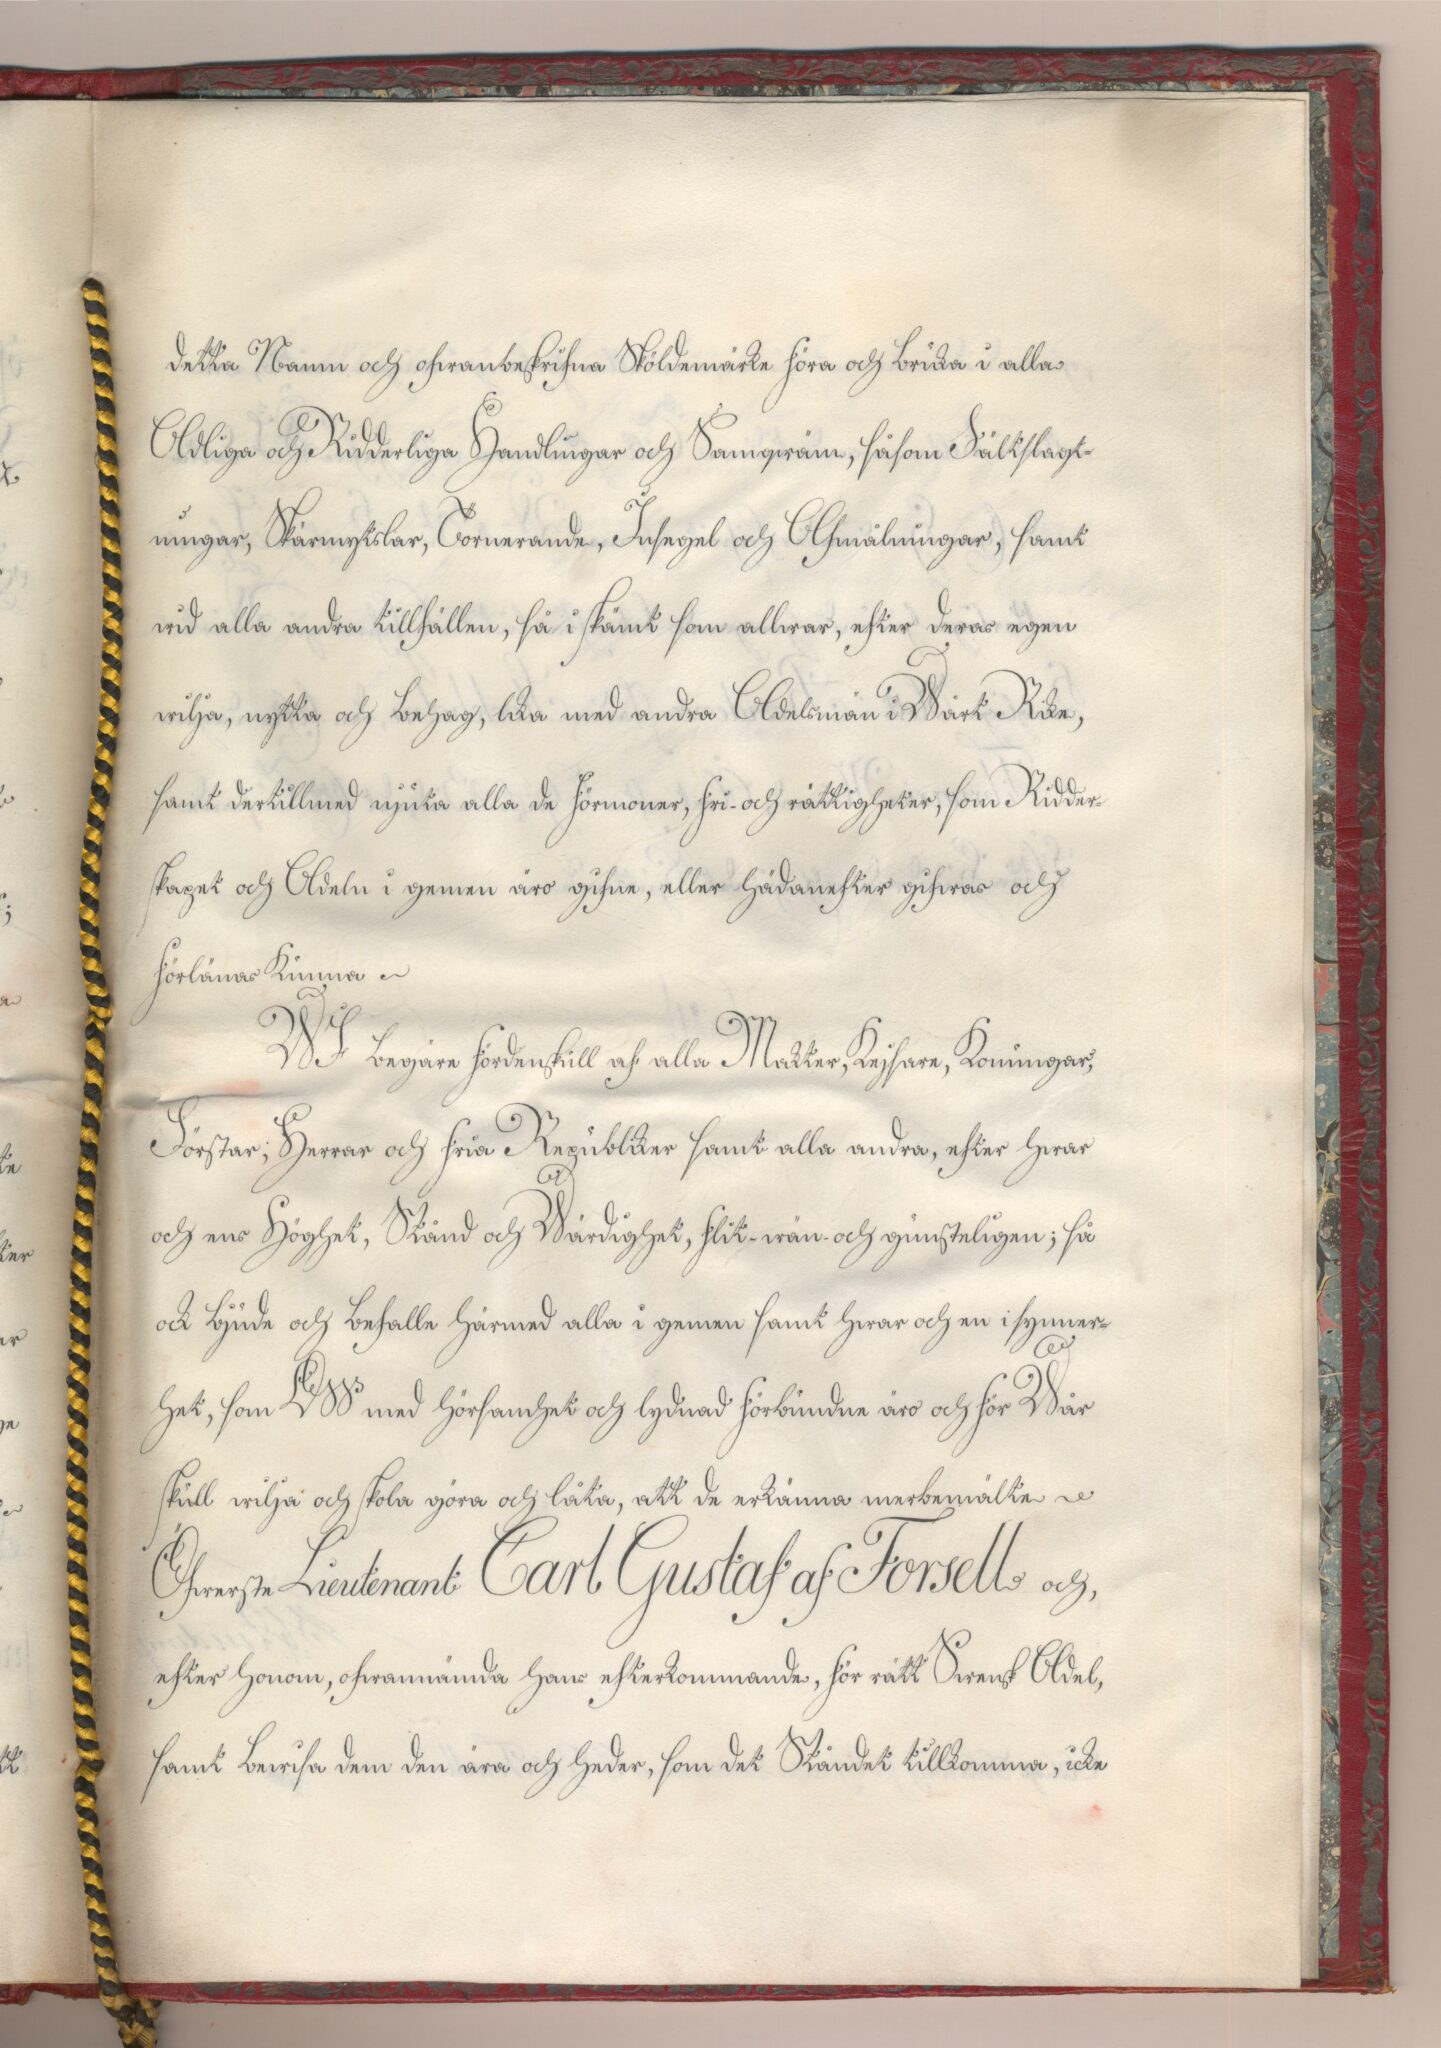 detta Namn och ofwanbeskrifna Sköldemärke föra och bruka i alla
Adliga och Ridderliga Handlingar och Samqwäm, såsom Fältslagt-
ningar, Skärmytslar, Tornerande, Insegel och Afmålningar, samt
wid alla andra tillfällen, så i skämt som allwar, efter deras egen
wilja, nytta och behag, lika med andra Adelsmän i Wårt Rike,
samt dertillmed njuta alla de förmoner, fri- och rättigheter, som Ridder-
skapet och Adeln i gemen äro gifne, eller hädanefter gifwas och
förlänas kunna
WJ begäre fördenskull af alla Makter, Kejsare, Konungar,
Förstar, Herrar och fria Republiker samt alla andra, efter hwar
och ens Höghet, Stånd och Wärdighet, flit- wän- och gunsteligen; så
ock bjude och befalle härmed alla i gemen samt hwar och en i synner-
het, som OSS med hörsamhet och lydnad förbundne äro och för Wår
skull wilja och skola göra och låta, att de erkänna merbemälte
Öfwerste Lieutenant Carl Gustaf af Forsell och,
efter honom, ofwannämnda hans efterkommande, för rätt Swensk Adel,
samt bewisa dem den ära och heder, som det Ståndet tillkomma, icke